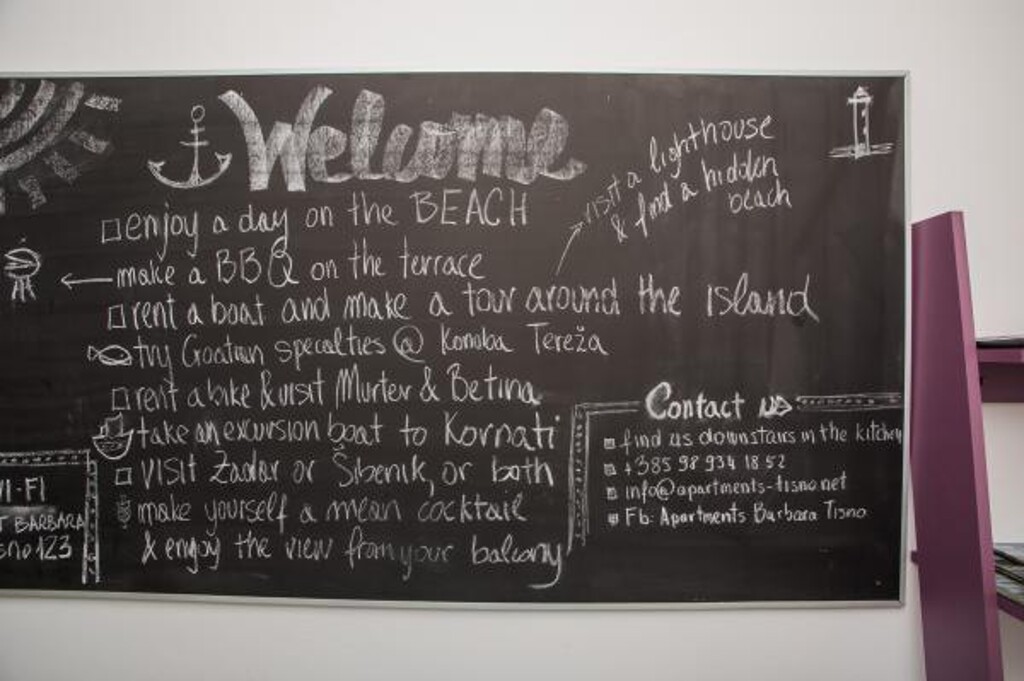 Welcome
visit a lighthouse
& find a hidden
beach
enjoy a day on the BEACH
make a BBQ on the terrace
rent a boat and make a tour around the island
try Croatian specialties @ Konoba Tereža
rent a bike & visit Murter & Betina
take an excursion boat to Kornati
visit Zadar or Šibenik, or both
make yourself a mean cocktail
& enjoy the view from your balcony
Contact us
find us downstairs in the kitchen
+385 98 934 18 52
info@apartments-tisno.net
Fb: Apartments Barbara Tisno
WI-FI
BARBARA
sno123